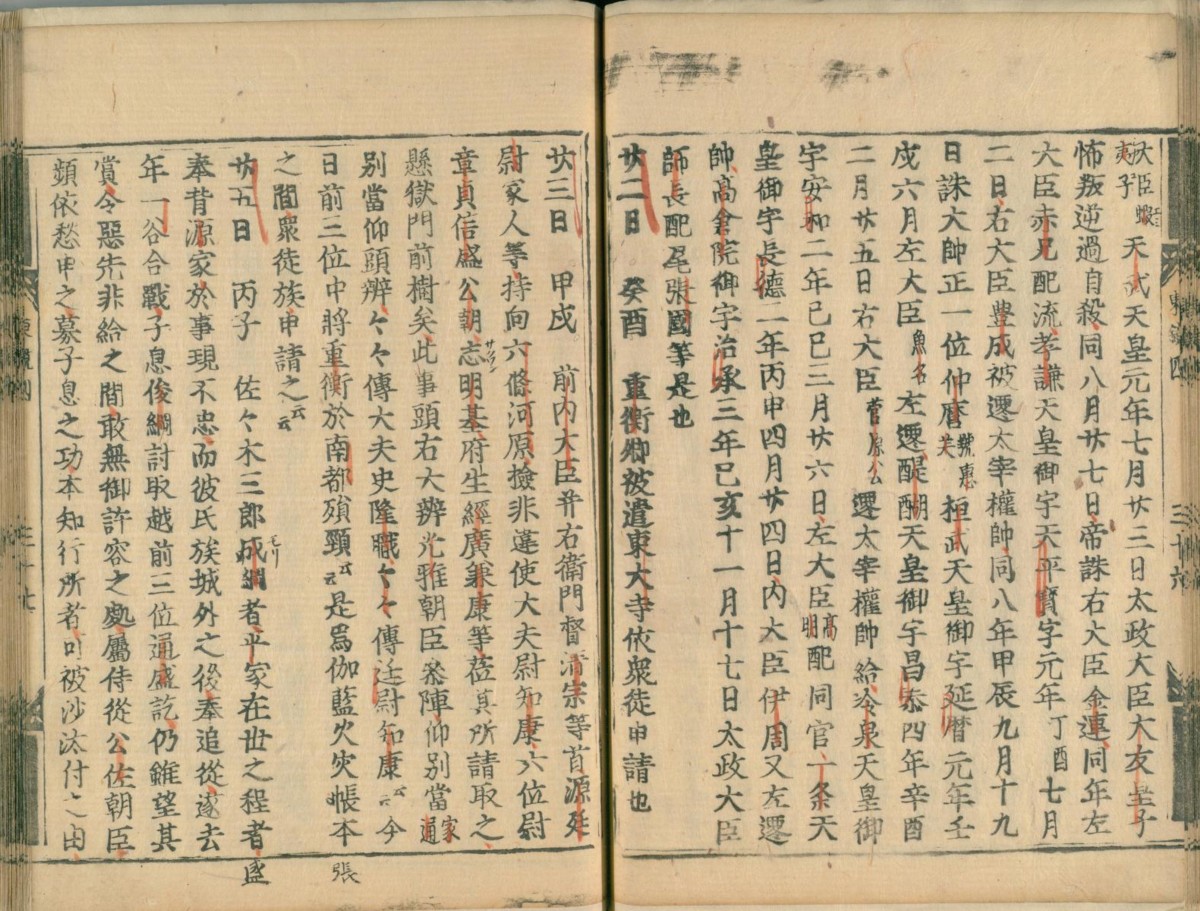 大臣蝦夷子天武天皇元年七月廿三日太政大臣大友皇子
怖叛逆過自殺同八月廿七日帝誅右大臣金連同年左
大臣赤兄配流孝謙天皇御宇天平寳字元年丁酉七月
二日右大臣豊成被遷太宰權帥同八年甲辰九月十九
日誅大師正一位仲麿號惠美桓武天皇御宇延暦元年壬
戌六月左大臣魚名左遷醍醐天皇御宇昌泰四年辛酉
二月廿五日右大臣菅原公遷太宰權帥給冷泉天皇御
宇安和二年己巳三月廿六日左大臣高明配同官一条天
皇御宇長德二年丙申四月廿四日内大臣伊周又左遷
帥高倉院御宇治承三年己亥十一月十七日太政大臣
師長配尾張國等是也
廿二日 癸酉 重衡卿被遣東大寺依衆徒申請也
東鑑四 三十六
廿三日 甲戌 前内大臣并右衛門督清宗等首源廷
尉家人等持向六條河原撿非違使大夫尉知康六位尉
章貞信盛公朝志明基府生經廣兼康等莅其所請取之
懸獄門前樹矣此事頭右大辨光雅朝臣叅陣仰別當家通
別當仰頭辨々々傳大夫史隆職々々傳廷尉知康云云今
日前三位中將重衡於南都刎頸云云是爲伽藍火灾帳本
張
之間衆徒族申請之云云
廿五日 丙子 佐々木三郎成綱モリ者平家在世之程者盛
奉昔源家於事現不忠而彼氏族城外之後奉追從遂去
年一谷合戰子息俊綱討取越前三位通盛訖仍雖望其
賞令惡先非給之間敢無御許容之處屬侍從公佐朝臣
頻依愁申之募子息之功本知行所者可被沙汰付之由